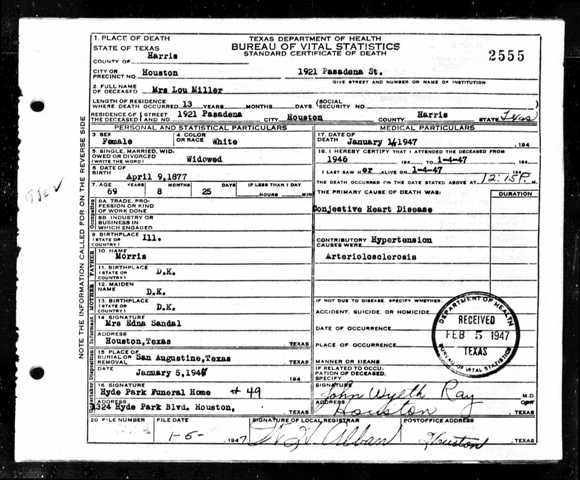 1. PLACE OF DEATH
STATE OF TEXAS
TEXAS DEPARTMENT OF HEALTH
BUREAU OF VITAL STATISTICS
STANDARD CERTIFICATE OF DEATH
2555
COUNTY OF Harris
CITY OR PRECINCT NO. Houston 1921 Pasadena St.
GIVE STREET AND NUMBER OR NAME OF INSTITUTION
2. FULL NAME OF DECEASED Mrs Lou Miller
LENGTH OF RESIDENCE WHERE DEATH OCCURRED 13 YEARS MONTHS DAYS (SOCIAL SECURITY NO.)
RESIDENCE OF THE DECEASED STREET AND NO. 1921 Pasadena CITY Houston COUNTY Harris STATE Texas
PERSONAL AND STATISTICAL PARTICULARS
3 SEX Female
4 COLOR OR RACE White
5 SINGLE, MARRIED, WIDOWED OR DIVORCED (WRITE WORD) Widowed
6 DATE OF BIRTH April 9,1877
7. AGE YEARS MONTHS DAYS IF LESS THAN 1 DAY
69 8 25 HOURS MIN
8A. TRADE, PROFESSION OR KIND OF WORK DONE
8B. INDUSTRY OR BUSINESS IN WHICH ENGAGED
9 BIRTHPLACE (STATE OR COUNTRY) Ill.
10 NAME Morris
11. BIRTHPLACE (STATE OR COUNTRY) D.K.
12. MAIDEN NAME D.K.
13. BIRTHPLACE (STATE OR COUNTRY) D.K.
14 SIGNATURE Mrs Edna Sandal
ADDRESS Houston,Texas TEXAS
15 PLACE OF BURIAL OR REMOVAL San Augustine,Texas TEXAS
DATE January 5,1947 194
16 SIGNATURE Hyde Park Funeral Home # 49
ADDRESS 1324 Hyde Park Blvd. Houston, TEXAS
MEDICAL PARTICULARS
17. DATE OF DEATH January 4,1947 194
18. I HEREBY CERTIFY THAT I ATTENDED THE DECEASED FROM
1946 194 TO 1-4-47 194
I LAST SAW HER ALIVE ON 1-4-47 194
THE DEATH OCCURRED ON THE DATE STATED ABOVE AT 12:15P. M.
THE PRIMARY CAUSE OF DEATH WAS: DURATION
Conjestive Heart Disease
CONTRIBUTORY CAUSES WERE: Hypertension
Arteriolosclerosis
IF NOT DUE TO DISEASE, SPECIFY WHETHER:
ACCIDENT, SUICIDE, OR HOMICIDE
DATE OF OCCURRENCE
PLACE OF OCCURRENCE
MANNER OR MEANS
IF RELATED TO OCCUPATION OF DECEASED, SPECIFY
SIGNATURE John Wyeth Ray M.D.
ADDRESS Houston TEXAS
DEPARTMENT OF HEALTH
RECEIVED
FEB 5 1947
TEXAS
BUREAU OF VITAL STATISTICS
20 FILE NUMBER FILE DATE SIGNATURE OF LOCAL REGISTRAR POSTOFFICE ADDRESS
1-6- 1947 Houston TEXAS
NOTE THE INFORMATION CALLED FOR ON THE REVERSE SIDE
Occupation
FATHER
MOTHER
Informant